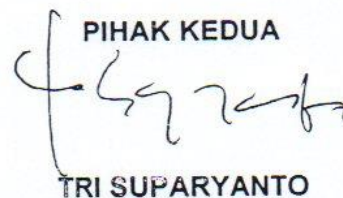 PIHAK KEDUA
TRI SUPARYANTO